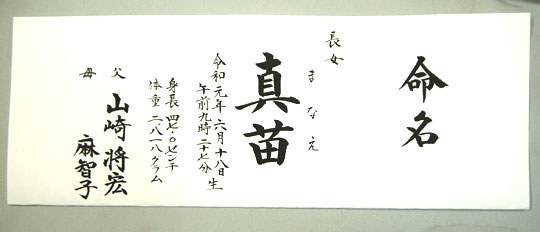 命名
長女
まなえ
真苗
令和元年六月十八日生
午前九時二十七分
身長四七・〇センチ
体重二、八一八グラム
父 山崎将宏
母 麻智子